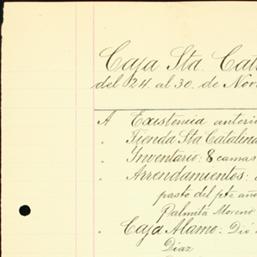 Caja Sta. Cat
del 24. al 30. de Nov
A Existencia anteri
. Tienda Sta Catalina
. Inventario: 8 camas
. Arrendamientos:
pasto del pte año
Palmita Moreno
. Caja Alamo: Dió
Diaz